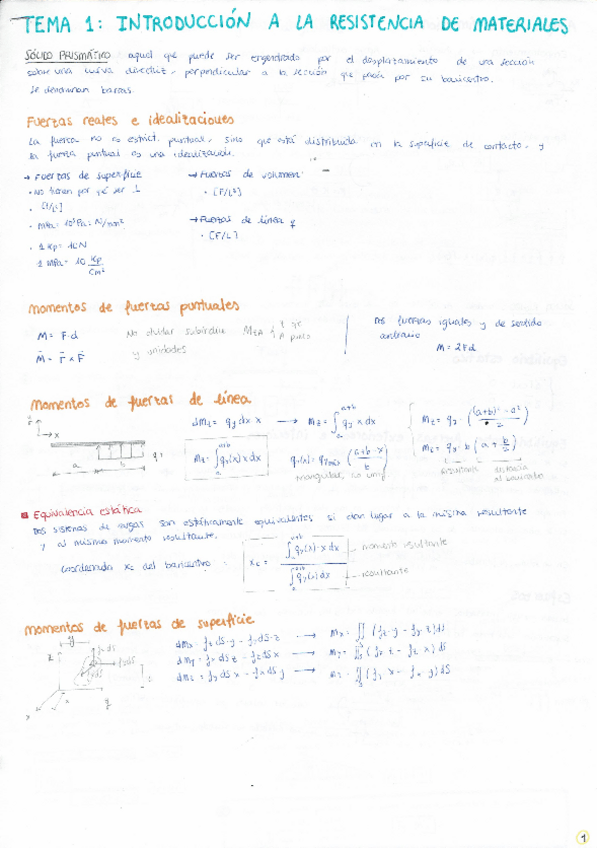 TEMA 1: INTRODUCCIÓN A LA RESISTENCIA DE MATERIALES
SÓLIDO PRISMÁTICO aquel que puede ser engendrado por el desplazamiento de una sección
sobre una curva directriz, perpendicular a la sección que pasa por su baricentro.
Se denominan barras.
Fuerzas reales e idealizaciones
La fuerza no es estrict. puntual, sino que está distribuida en la superficie de contacto, y
la fuerza puntual es una idealización.
→ Fuerzas de superficie → Fuerzas de volumen
• No tienen por qué ser ⊥ • [F/L³]
• MPa = 10⁶ Pa = N/mm² → Fuerzas de línea q
• [F/L]
1 MPa = 10 Kp/cm²
Momentos de fuerzas puntuales
M = F·d No olvidar subíndice Dos fuerzas iguales y de sentido
y unidades contrario
M = r x F M = 2Fd
Momentos de fuerzas de línea
dMz = qy dx x → Mz = ∫ qy x dx Mz = qy · ((a+b)² - a²)/2
Mz = ∫ qy(x) x dx Mz = qy · b (a + b/2)
triangular, resultante distancia
al baricentro
Equivalencia estática
Dos sistemas de cargas son estáticamente equivalentes si dan lugar a la misma resultante
y al mismo momento resultante.
Coordenada xc del baricentro: xc = ∫ qy(x)·x dx → momento resultante
∫ qy(x) dx → resultante
Momentos de fuerzas de superficie
dMx = fz dS·y - fy dS·z → Mx = ∬ (fz·y - fy·z) dS
dMy = fx dS z - fz dS x → My = ∬ (fx z - fz x) dS
dMz = fy dS x - fx dS y → Mz = ∬ (fy x - fx y) dS
1